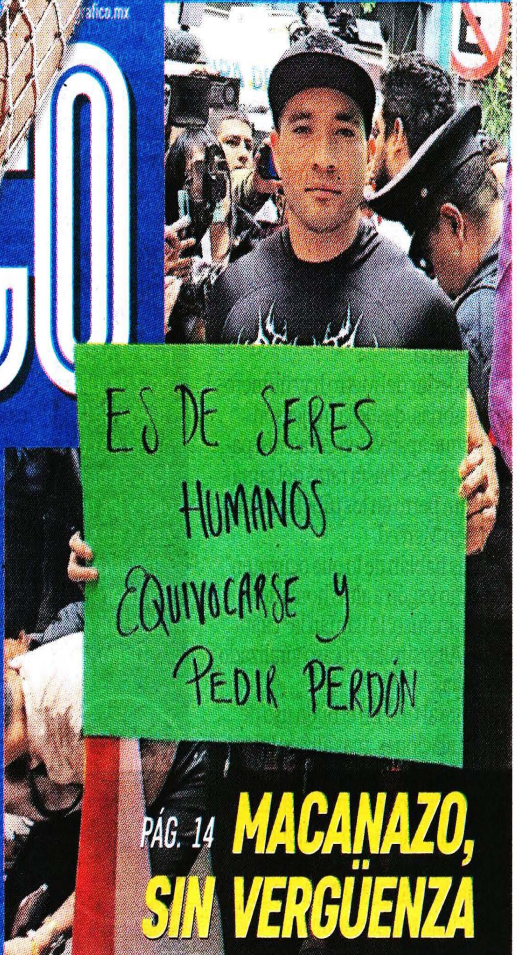 afico.mx
CO
ES DE SERES
HUMANOS
EQUIVOCARSE Y
PEDIR PERDÓN
PÁG. 14 MACANAZO,
SIN VERGÜENZA